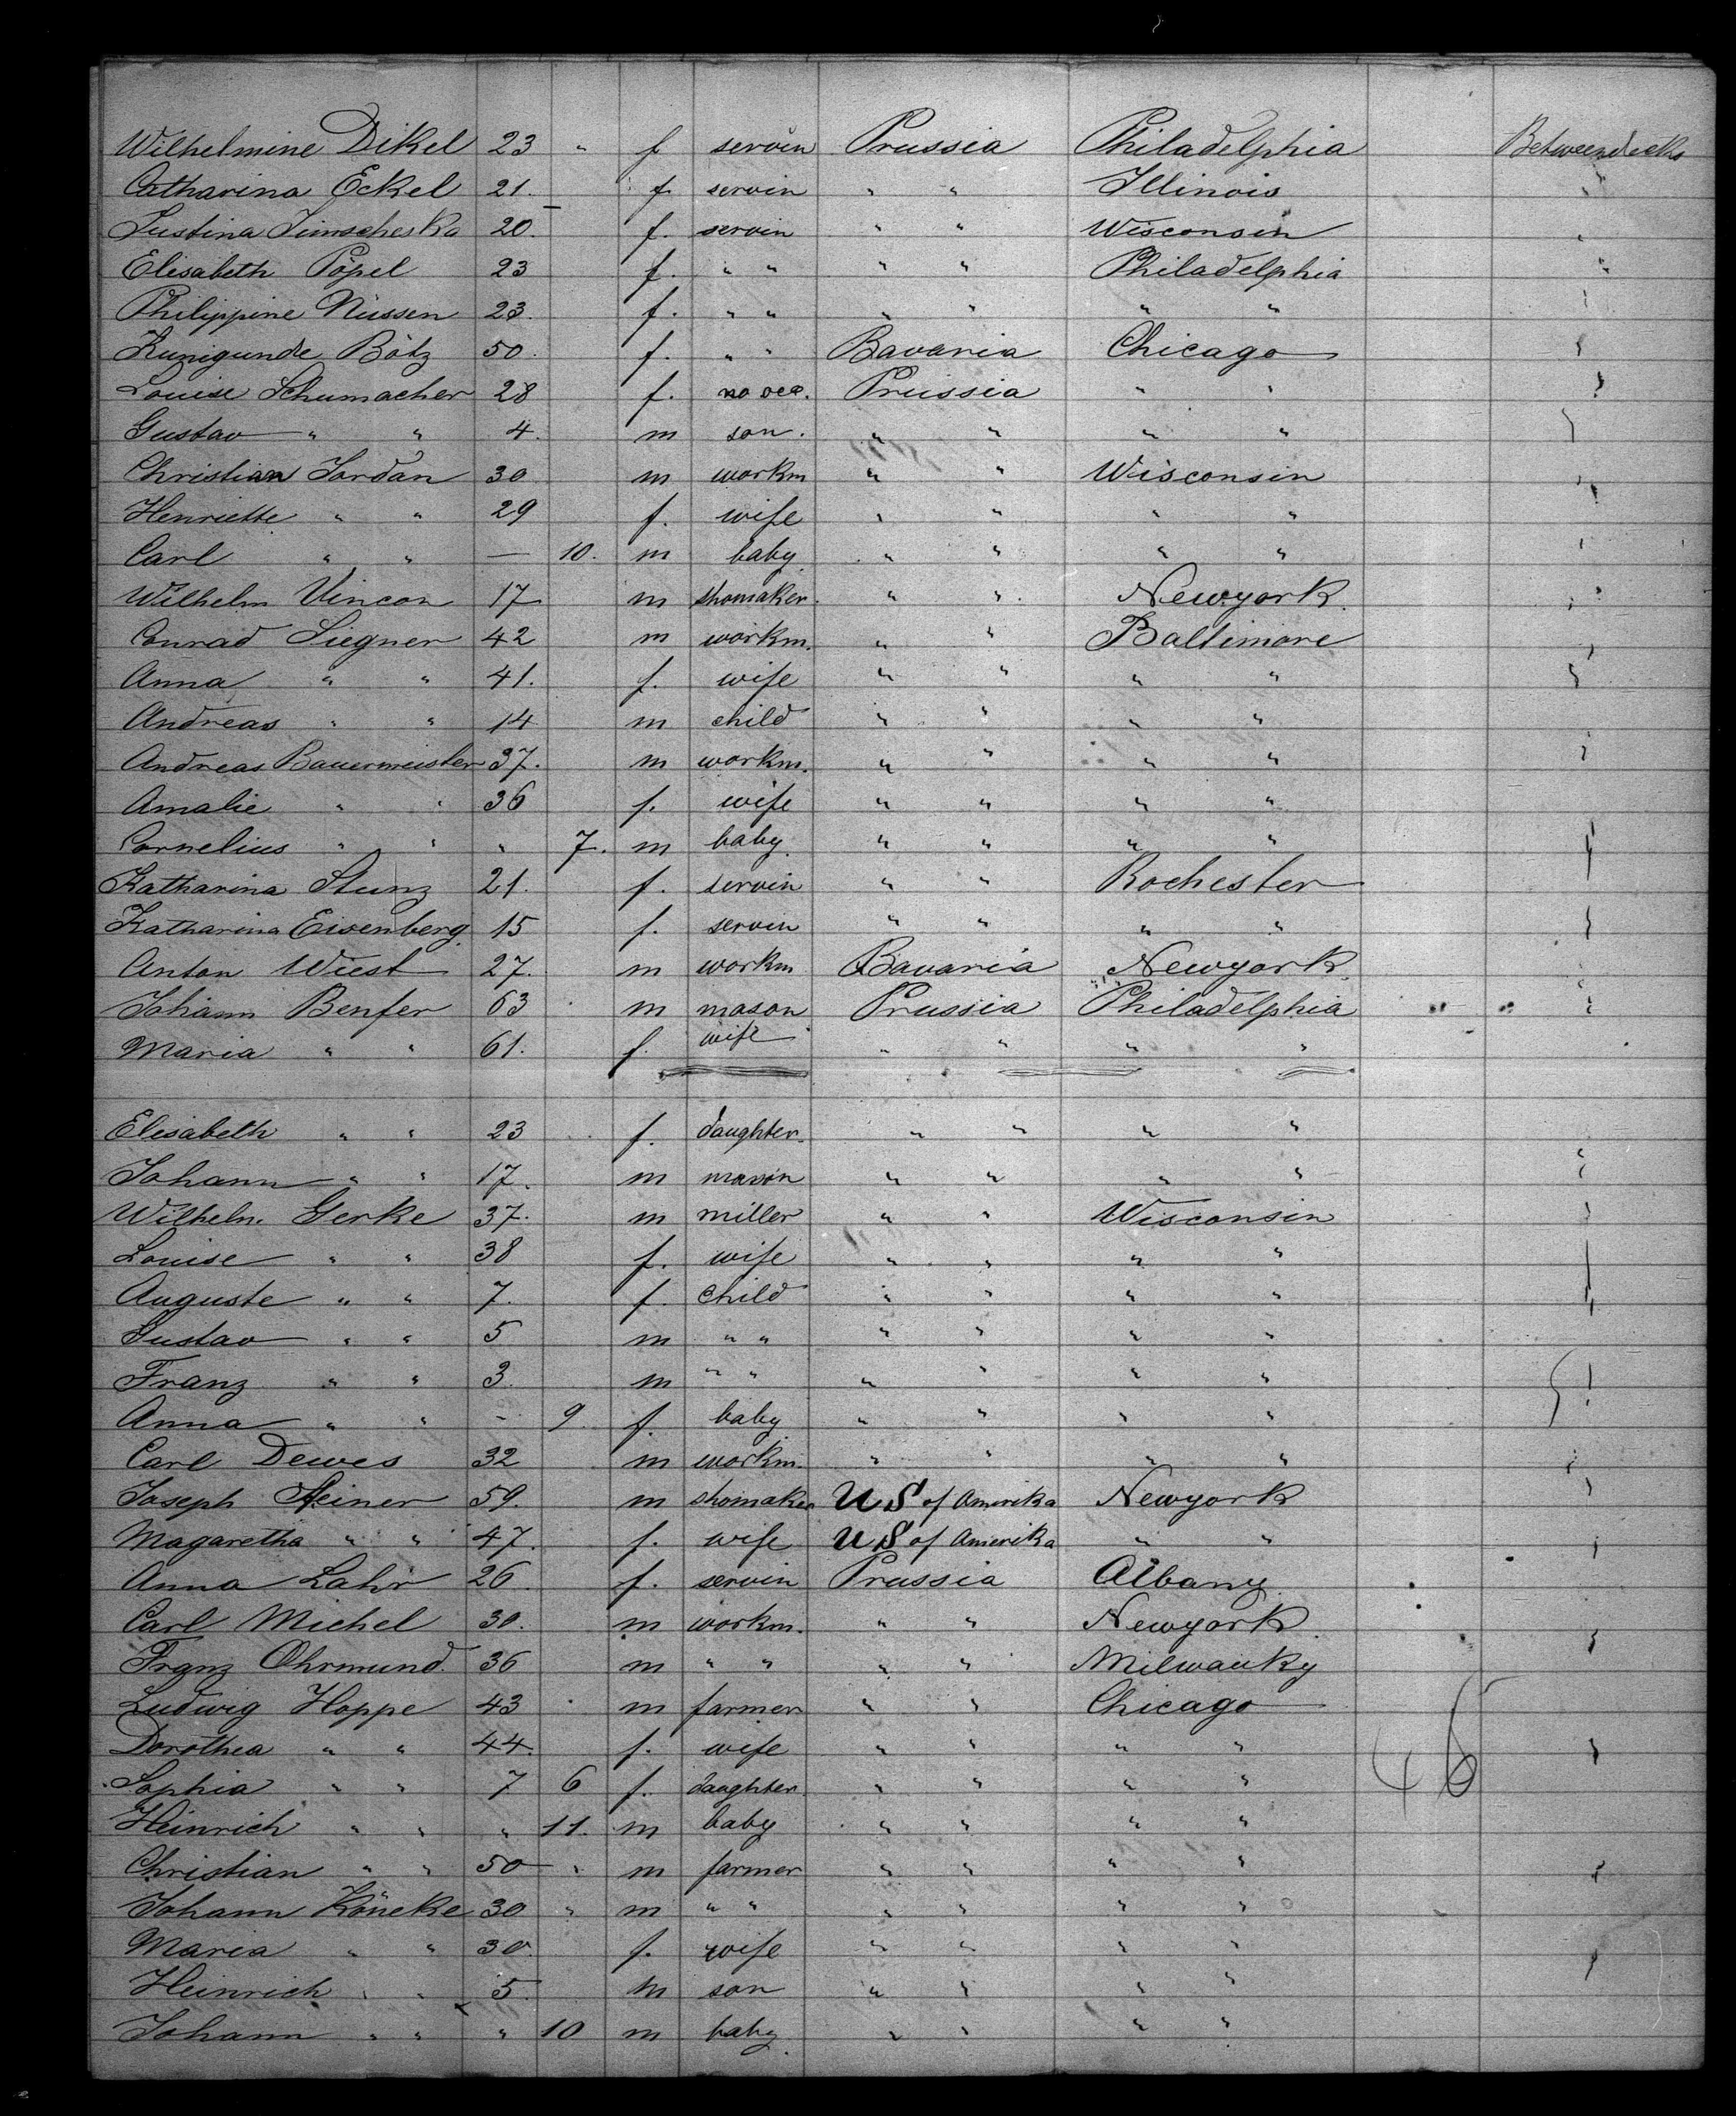 Wilhelmine Dikel 23 " f servin Prussia Philadelphia Betweendecks
Catharina Eckel 21. f. servin " " Illinois "
Justina 20. f. servin " " Wisconsin "
Elisabeth Pöpel 23 f. " " " " Philadelphia "
Philippine Nüssen 23. f. " " " " " "
Kunigunde Bötz 50. f. " " Bavaria Chicago
Louise Schumacher 28 f. no occ. Prussia " "
Gustav " " 4. m son. " " " "
Christian Jordan 30 m workm " " Wisconsin
Henriette " " 29 f. wife " " " "
Carl " " — 10. m baby. " " " "
Wilhelm Vincon 17 m shomaker. " " Newyork.
Conrad Siegner 42 m workm. " " Baltimore
Anna " " 41. f. wife " " " "
Andreas " " 14 m child " " " "
Andreas Bauermeister 37. m workm. " " " "
Amalie " " 36 f. wife " " " "
Cornelius " " " 7. m baby. " " " "
Katharina Stunz 21. f. servin " " Rochester
Katharina Eisenberg. 15 f. servin " " " "
Anton Wiest 27. m workm Bavaria Newyork.
Johann Benfer 63 m mason Prussia Philadelphia
Maria " " 61. f. wife " " " "
Elisabeth " " 23 f. daughter. " " " "
Johann " " 17. m mason " " " "
Wilhelm. Gerke 37. m miller " " Wisconsin
Louise " " 38 f. wife " " " "
Auguste " " 7. f. child " " " "
Gustav " " 5 m " " " " " "
Franz " " 3. m " " " " " "
Anna " " - 9. f. baby. " " " "
Carl Dewes 32 m workm. " " " "
Joseph Steiner 59. m shomaker US of Amerika Newyork
Magaretha " " 47. f. wife US of Amerika " "
Anna Lahr 26. f. servin Prussia Albany.
Carl Michel 30. m workm. " " Newyork.
Franz Ohrmund. 36 m " " " " Milwauky
Ludwig Hoppe 43 m farmer " " Chicago
Dorothea " " 44. f. wife " " " "
Sophia " " 7 6 f. daughter. " " " " 46
Heinrich " " " 11. m baby " " " "
Christian " " 50 " m farmer " " " "
Johann Köneke 30 " m " " " " " "
Maria " " 30. f. wife " " " "
Heinrich " " 5. m son " " " "
Johann " " " 10 m baby. " " " "